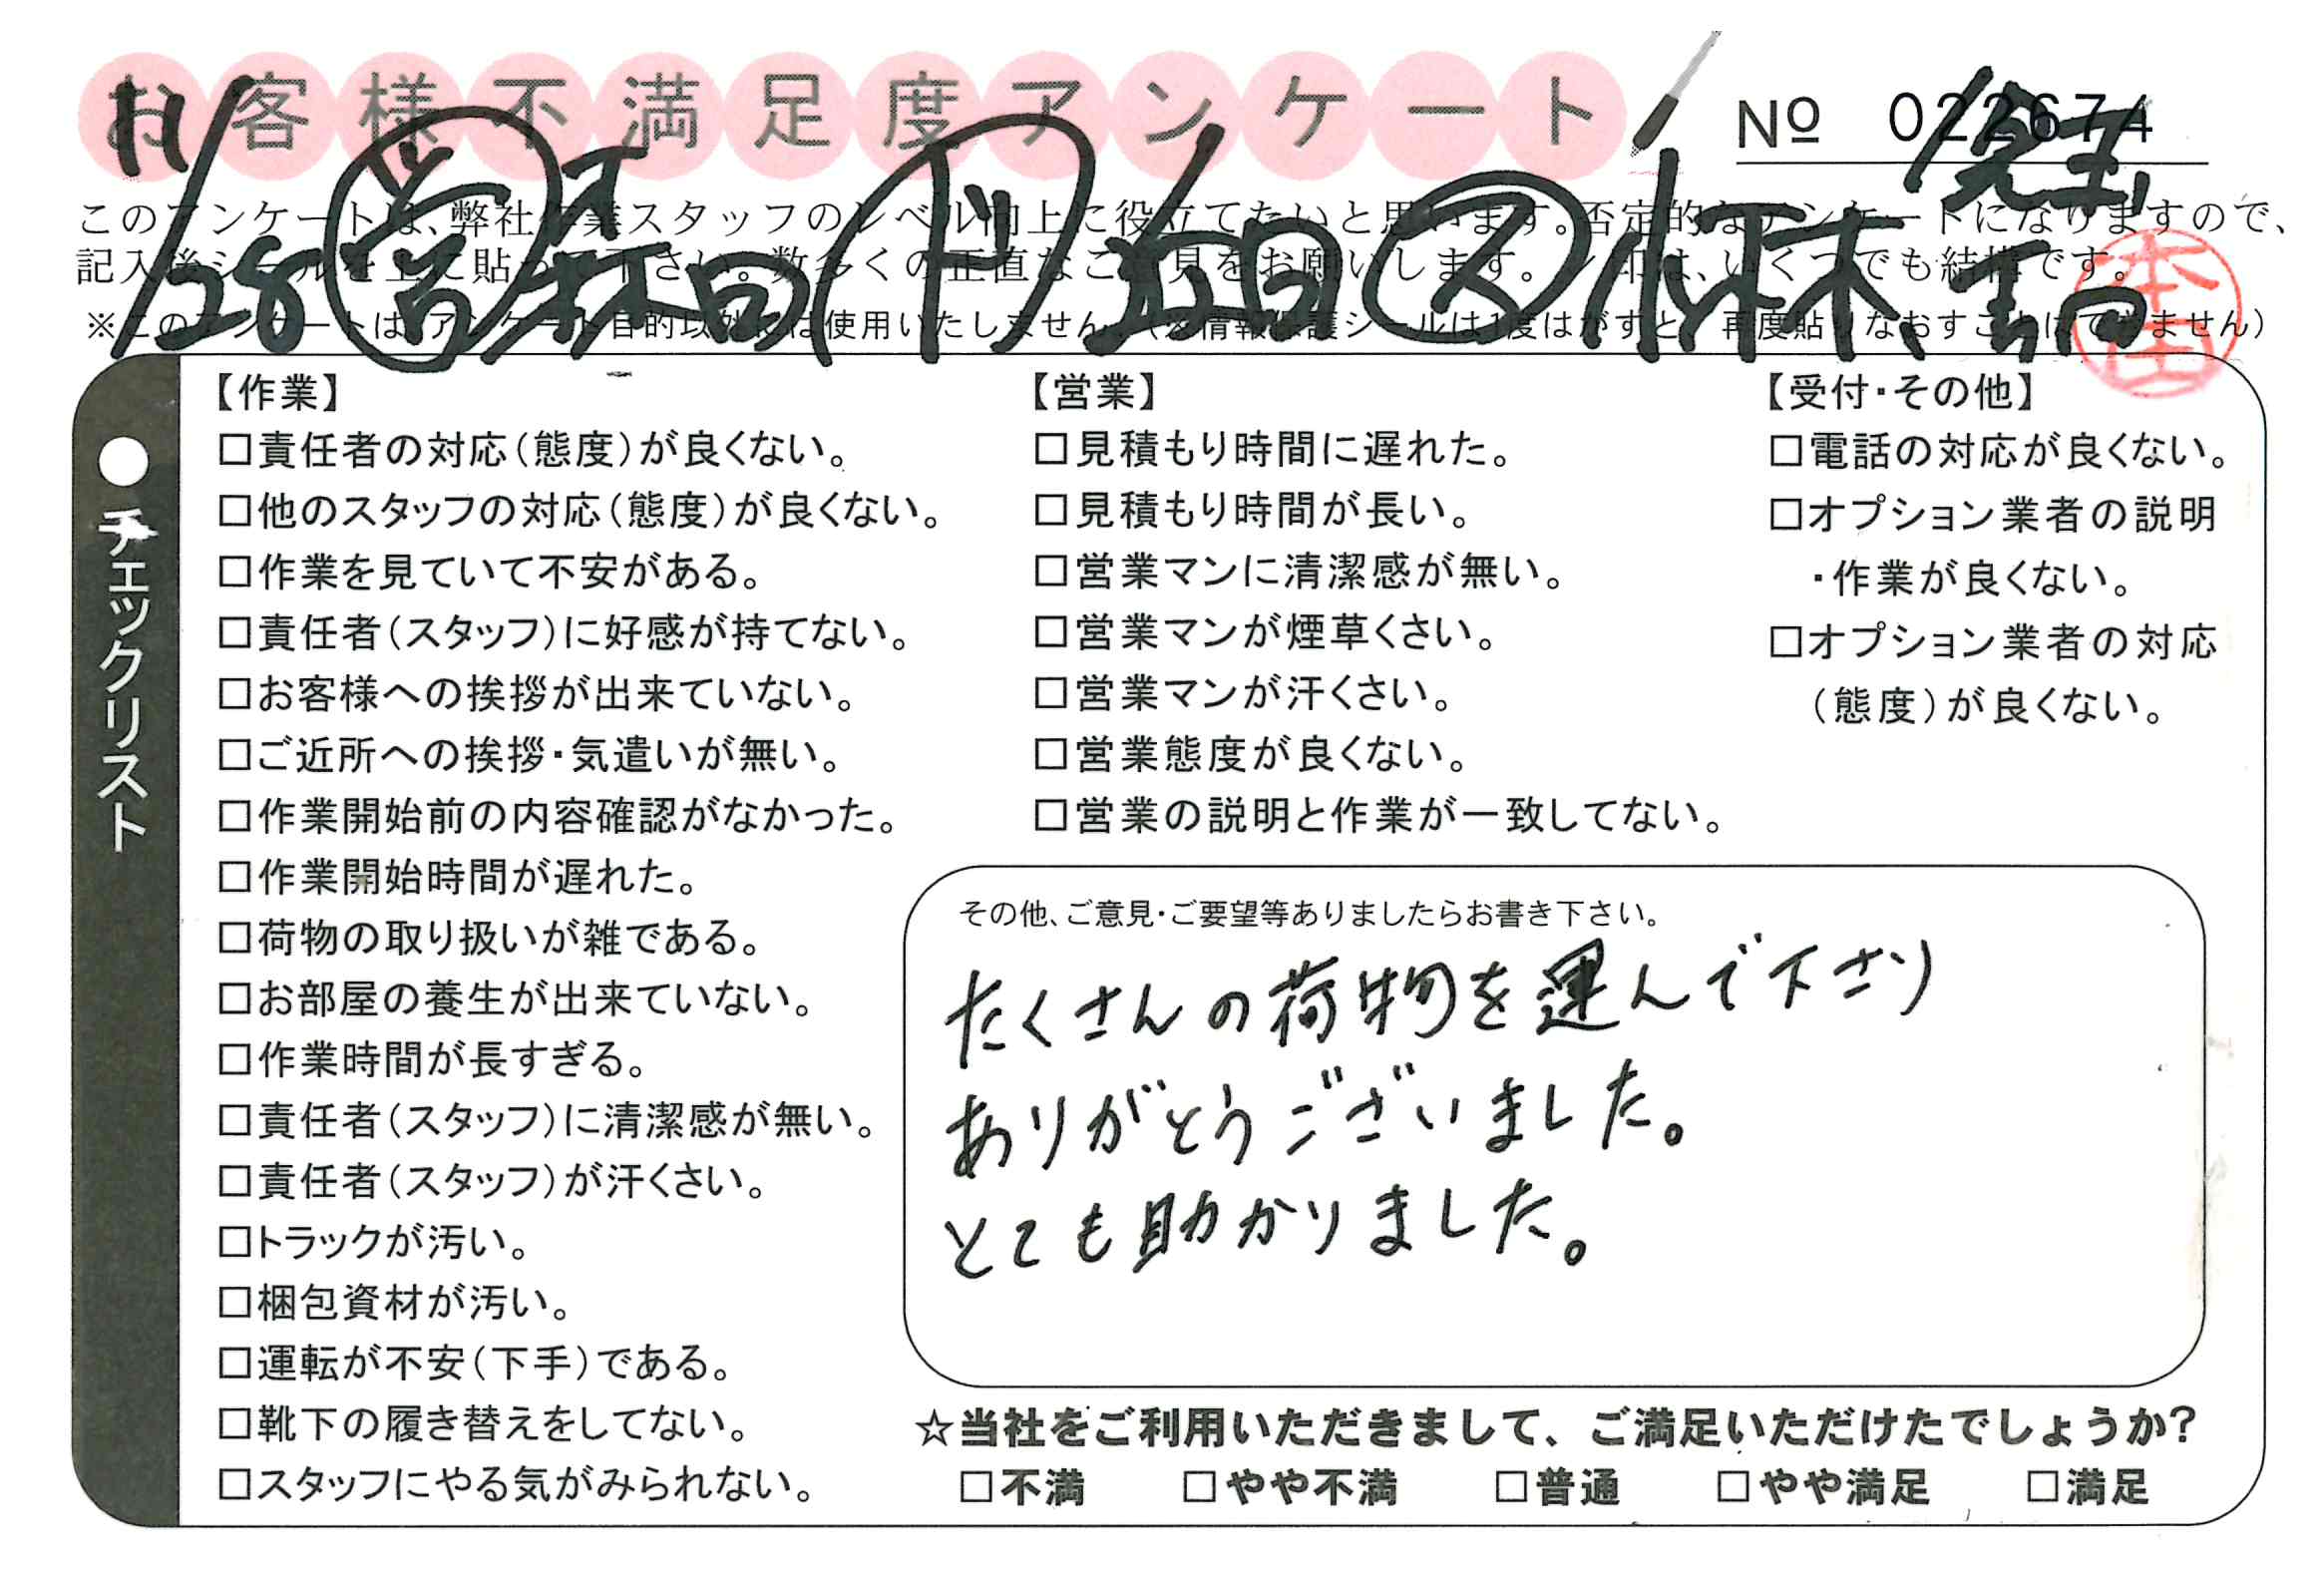 お客様不満足度アンケート
№ 022674
11/28 営 杯田 ド 江田 ス 小林
このアンケートは、弊社作業スタッフのレベル向上に役立てたいと思います。否定的なアンケートになりますので、
記入後シールを上に貼って下さい。数多くの正直なご意見をお願いします。レ印は、いくつでも結構です。
※このアンケートは、アンケート目的以外には使用いたしません。(※情報保護シールは1度はがすと、再度貼りなおすことはできません)
本田
●チェックリスト
【作業】
□責任者の対応(態度)が良くない。
□他のスタッフの対応(態度)が良くない。
□作業を見ていて不安がある。
□責任者(スタッフ)に好感が持てない。
□お客様への挨拶が出来ていない。
□ご近所への挨拶・気遣いが無い。
□作業開始前の内容確認がなかった。
□作業開始時間が遅れた。
□荷物の取り扱いが雑である。
□お部屋の養生が出来ていない。
□作業時間が長すぎる。
□責任者(スタッフ)に清潔感が無い。
□責任者(スタッフ)が汗くさい。
□トラックが汚い。
□梱包資材が汚い。
□運転が不安(下手)である。
□靴下の履き替えをしてない。
□スタッフにやる気がみられない。
【営業】
□見積もり時間に遅れた。
□見積もり時間が長い。
□営業マンに清潔感が無い。
□営業マンが煙草くさい。
□営業マンが汗くさい。
□営業態度が良くない。
□営業の説明と作業が一致してない。
【受付・その他】
□電話の対応が良くない。
□オプション業者の説明
・作業が良くない。
□オプション業者の対応
(態度)が良くない。
その他、ご意見・ご要望等ありましたらお書き下さい。
たくさんの荷物を運んで下さり
ありがとうございました。
とても助かりました。
☆当社をご利用いただきまして、ご満足いただけたでしょうか?
□不満 □やや不満 □普通 □やや満足 □満足